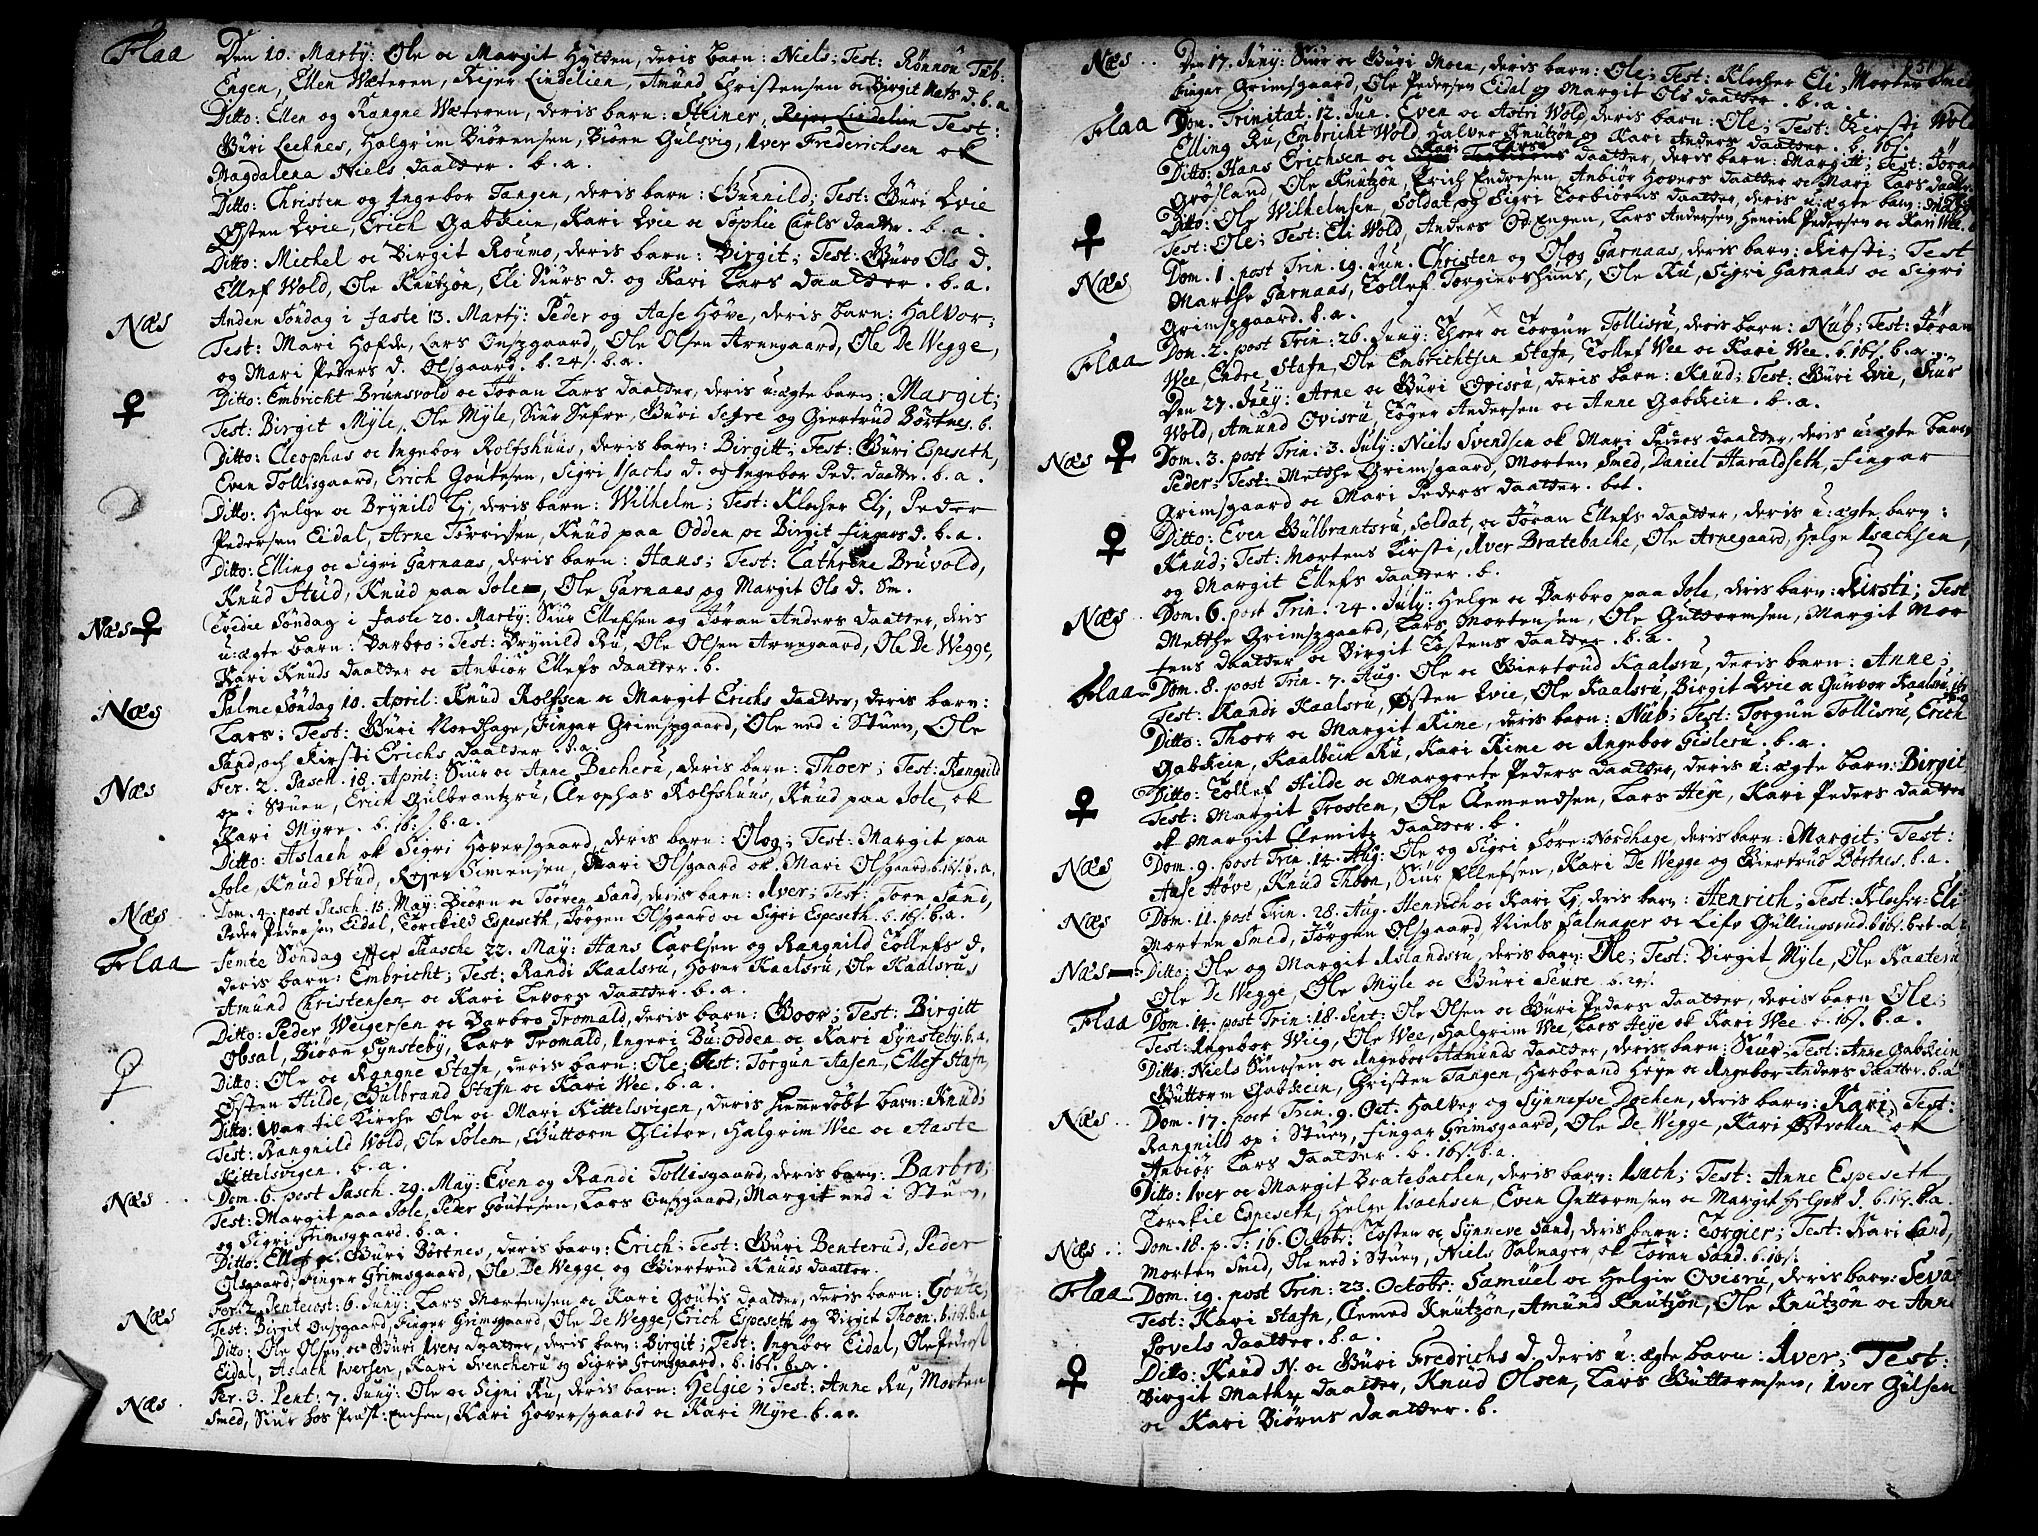 Flaa Den 10. Martÿ: Ole oc Margit Hÿtten, deris barn: Niels; Test: Rönnou Tub:
Engen, Ellen Wæteren, Rejer Lindelien, Amund Christensen oc Birgit Mats d. b. a.
Ditto: Ellen og Rangne Wæteren, deris barn: Steiner, Rejer Lindelien Test:
Gùri Leknes, Halgrim Biörensen, Biörn Gulsvig, Iver Frederichsen ok
Magdalena Niels daatter. b. a.
Ditto: Christen og Ingebor Tangen, deris barn: Gunnild; Test: Gùri Lvie
Østen Lvie, Erich Gabkein, Kari Lvie oc Sophie Carls daatter. b. a.
Ditto: Michel oc Birgit Roùmo, deris barn: Birgit; Test: Gùro Ols d.
Ellef Wold, Ole Knùtzön, Eli Siùrs d. og Kari Lars daatter. b. a.
Næs Anden Söndag i faste 13. Martÿ: Peder og Aase Höve, deris barn: Halvor;
Test: Mari Hofde, Lars Onszgaard, Ole Olsen Arnegaard, Ole De Wegge,
og Mari Peders d. Olsgaard. b. 24 s. b. a.
♀ Ditto: Embricht Brunsvold oc Jöran Lars daatter, deris u:ægte barn: Margit;
Test: Birgit Mÿle, Ole Mÿle, Siùr Sefre, Gùri Sefre og Giertrud Börtnes. b.
Ditto: Cleophas oc Ingebor Rolfshuùs, deris barn: Birgitt; Test: Gùri Espeseth,
Even Tollisgaard, Erich Goutesen, Sigri Isachs d. og Ingebor Ped. daatter. b. a.
Ditto: Helge oc Brÿnild Ej, deris barn: Wilhelm; Test: Klocher Elj, Peder
Pedersen Eidal, Arne Törrisen, Knùd paa Odden oc Birgit fingars d. b. a.
Ditto: Elling oc Sigri Garnaas, deris barn: Hans; Test: Cathrine Bruvold,
Knùd Stùd, Knùd paa Jole, Ole Garnaas og Margit Ols d. Sm.
Næs ♀ Tredie Söndag i faste 20. Martÿ: Siùr Ellefsen og Jöran Anders daatter, deris
u:ægte barn: Barbro; Test: Brÿnild Rù, Ole Olsen Arnegaard, Ole De Wegge,
Kari Knùds daatter oc Anbiör Ellefs daatter. b.
Næs Palme Söndag 10. April: Knùd Rolfsen oc Margit Erichs daatter, deris barn:
Lars; Test: Gùri Nordhage, Fingar Grimszgaard, Ole ned i Stùen, Ole
Sand, och Kirsti Erichs daatter. b. a.
Næs Fer. 2. Pasch. 18. April: Siùr oc Anne Becherù, deris barn: Thoer; Test: Rangnild
op i Stùen, Erich Gulbrantzrù, Cleophas Rolfshuùs, Knùd paa Jole, ok
Kari Mÿre. b. 16 s. b. a.
Ditto: Aslach ok Sigri Hoversgaard, deris barn: Olog; Test: Margit paa
Jole, Knùd Stùd, Rejer Simensen, Mari Olsgaard ok Mari Olsgaard. b. 16 s. b. a.
Næs Dom. 4. post Pasch. 15. Maÿ: Biörn oc Jören Sand, deris barn: Iver; Test: Tore Sand,
Peder Pedersen Eidal, Torckild Espeseth, Jörgen Olsgaard oc Sigri Espeseth. b. 16 s. b. a.
Flaa Femte Söndag efter Paasche 22. Maÿ: Hans Carlsen og Rangnild Tollefs d.
deris barn: Embricht; Test: Randi Kaalsrù, Hover Kaalsrù, Ole Kaalsrù,
Amùnd Christensen oc Kari Levors daatter. b. a.
Ditto: Peder Weigersen oc Barbro Tromald, deris barn: Goor; Test: Birgitt
Obsal, Biörn Sÿnstebÿ, Lars Tromald, Ingeri Bù:Odden oc Kari Sÿnstebÿ. b. a.
Ditto: Ole oc Rangne Stafn, deris barn: Ole; Test: Torgùn Aasen, Ellef Stafn,
Østen Hilde, Gulbrand Stafn oc Kari Wee. b. a.
Ditto: war til Kirche Ole oc Mari Kittelsvigen, deris hiemmedöbt barn: Knùd;
Test: Rangnild Wold, Ole Solem, Guttorm Glitre, Halgrim Wee oc Aaste
Kittelsvigen. b. a.
Næs Dom. 6. post Pasch. 29. Maÿ: Even og Randi Tollisgaard, deris barn: Barbro;
Test: Margit paa Jole, Peder Goùtesen, Lars Onszgaard, Margit ned i Stùen,
og Sigri Grimsgaard. b. a.
Ditto: Ellef oc Gùri Börtnes, deris barn: Erich; Test: Gùri Benterud, Peder
Olsgaard, Finger Grimsgaard, Ole De Wegge og Giertrud Knùds daatter.
Næs Fer. 2. Pentecost: 6. Junÿ: Lars Mortensen oc Kari Goùtis daatter, deris barn: Goùte;
Test: Birgit Onszgaard, Finger Grimsgaard, Ole De Wegge, Erich Espeseth og Birgit Thoen. b. 16 s. b. a
Ditto: Ole Olsen oc Gùri Ivers daatter, deris barn: Birgit; Test: Ingebor Eidal, Ole Peders
Eidal, Aslach Iversen, Kari Svencherù og Sigri Grimsgaard. b. 16 s. b. a.
Næs Fer. 3. Pent: 7. Junÿ: Ole oc Signi Rù, deris barn: Helgie; Test: Anne Rù, Morten
Smed, Siùr hos Præst: Ensen, Kari Hoversgaard oc Kari Mÿre. b. a.
Næs Den 17. Junÿ: Siùr oc Gùri Moen, deris barn: Ole; Test: Klocher Eli, Morten Smed
Fingar Grimsgaard, Ole Pedersen Eidal og Margit Ols daatter. b. a.
Flaa Dom. Trinitat. 12. Jun. Even oc Astri Wold, deris barn: Ole; Test: Kersti Wold
Elling Rù, Embricht Wold, Halvor Knùtzön og Kari Anders daatter. b. 16 s.
Ditto: Hans Erichsen oc Kari Lars daatter, deris barn: Margitt; Test: Jöran
Grösland, Ole Knùtzön, Erich Endresen, Anbiör Hovers daatter oc Mari Lars daatter
♀ Ditto: Ole Wilhelmsen, Soldat, og Sigri Torbiörns daatter, deris u:ægte barn:
Test: Ole; Test: Eli Wold, Anders Od Engen, Lars Andersen, Henrich Pedersen oc Kari Wee. b
Næs Dom. 1. post Trin. 19. Jun. Christen og Olog Garnaas, deris barn: Kirsti; Test
Marthe Garnaas, Tollef Torgiershuùs, Ole Rù, Sigri Garnaas oc Sigri
Grimszgaard. b. a.
Flaa Dom. 2. post Trin. 26. Junÿ: Thoer oc Torgùn Tollisrù, deris barn: Nùb; Test: Jöran
Wee, Endre Stafn, Ole Embrichtsen Stafn, Tollef Wee oc Kari Wee. b. 16 s. b. a.
Den 27. Junÿ: Arne oc Gùri Ovisrù, deris barn: Knùd; Test: Gùri Lvie, Siùr
Wold, Amùnd Ovisrù, Töger Andersen oc Anne Gabkein. b. a.
Næs ♀ Dom. 3. post Trin. 3. Julÿ: Niels Svendsen ok Mari Peders daatter, deris u:ægte barn
Peder; Test: Metthe Grimsgaard, Morten Smed, Daniel Haraldseth, Fingar
Grimsgaard oc Mari Peders daatter. bet.
♀ Ditto: Even Gùlbrantsrù, Soldat, oc Jöran Ellefs daatter, deris u:ægte barn:
Knùd; Test: Mortens Kirsti, Iver Bratebache, Ole Arnegaard, Helge Isachsen,
og Margit Ellefs daatter. b.
Næs Dom. 6. post Trin. 24. Julÿ: Helge oc Barbro paa Jole, deris barn: Kirsti; Test
Metthe Grimszgaard, Lars Mortensen, Ole Guttormsen, Margit Mor
tens daatter oc Birgit Tostens daatter. b. a.
Flaa Dom. 8. post Trin. 7. Aug. Ole oc Giertrùd Kaalsrù, deris barn: Anne;
Test: Randi Kaalsrù, Østen Lvie, Ole Kaalsrù, Birgit Lvie oc Gùnvor Kaalsrù.
Ditto: Thoer oc Margit Kime, deris barn: Nùb; Test: Torgùn Tollisrù, Erich
Gabkein, Kaalbein Rù, Kari Kime oc Angebor Gislerù. b. a.
♀ Ditto: Tollef Hilde oc Margrete Peders daatter, deris u:ægte barn: Birgit,
Test: Margit Trosten, Ole Clemendsen, Lars Heÿe, Kari Peders daatter
ok Margit Clemitz daatter. b.
Næs Dom. 9. post Trin. 14. Aug: Ole og Sigri Söre-Nordhage, deris barn: Margit; Test:
Aase Höve, Knùd Thoen, Siùr Ellefsen, Kari De Wegge og Giertrùd Börtnes. b. a.
Næs Dom. 11. post Trin. 28. Aug. Henrich oc Kari Ej, deris barn: Henrich; Test: Klocher Eli
Morten Smed, Jörgen Olsgaard, Niels Salmager oc Lisv Gùllingsrud. b. 16 s. bet.
Næs Ditto: Ole og Margit Aslandsrù, deris barn: Ole; Test: Birgit Mÿle, Ole Kaaterù
Ole De Wegge, Ole Mÿle oc Gùri Seùre. b. 24 s.
Flaa Dom. 14. post Trin: 18. Sept: Ole Olsen oc Gùri Peders daatter, deris barn Ole;
Test: Angebor Wiig, Ole Wee, Halgrim Wee, Lars Heÿe ok Kari Wee. b. 16 s. b. a.
Ditto: Niels Simosen oc Angebor Aamùnds daatter, deris barn: Siùr; Test: Anne Gabkein
Guttorm Gabkein, Christen Tangen, Herbrand Heÿe oc Angebor Anders daatter. b. a
Næs Dom. 17. post Trin. 9. Oct. Halvor og Sÿnnefve Dochen, deris barn: Kari; Test:
Rangnild op i Stùen, Fingar Grimsgaard, Ole De Wegge, Kari Østroken ok
Anbiör Lars daatter. b. 16 s. b. a.
Ditto: Iver oc Margit Bratebachen, deris barn: Isach; Test: Anne Espeseth
Torckil Espeseth, Helge Isachsen, Even Guttormsen oc Margit Helges d. b. 16 s. b. a.
Næs Dom. 18. p. T: 16. Octobr: Tosten oc Sÿnneve Sand, deris barn: Torgier; Test: Kari Sand,
Morten Smed, Ole ned i Stùen, Niels Salmager, ok Jöran Sand. b. 16 s.
Flaa Dom. 19. post Trin: 23. Octobr: Samùel oc Helgie Ovisrù, deris barn: Seva
Test: Kari Stafn, Clemed Knùtzön, Amùnd Knùtzön, Ole Knùtzön oc Anne
Povels daatter. b. a.
♀ Ditto: Knùd N. oc Gùri Fredrichs d. deris u:ægte barn: Iver; Test:
Birgit Mathis daatter, Knùd Olsen, Lars Guttormsen, Iver Gùlsen
oc Kari Biörns daatter. b.